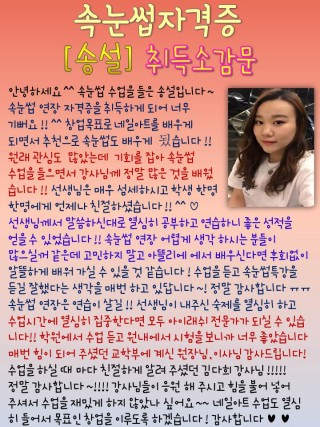 속눈썹자격증
[송설] 취득소감문
안녕하세요^^ 속눈썹 수업을들은 송설입니다~
속눈썹 연장 자격증을 취득하게 되어 너무
기뻐요!! ^^ 창업목표로 네일아트를 배우게
되면서 추천으로 속눈썹도 배우게 됐습니다!!
원래 관심도 많았는데 기회를 잡아 속눈썹
수업을들으면서 강사님께 정말 많은 것을 배웠
습니다!! 선생님은 매우 섬세하시고 학생 한명
한명에게 언제나 친절하셨습니다!! ^^ ♡
선생님께서 말씀하신대로 열심히 공부하고 연습하니 좋은 성적을
얻을 수 있었습니다!! 속눈썹 연장 어렵게 생각 하시는 분들이
많으실꺼 같은데 고민하지 말고 아뜰리에 에서 배우신다면 후회없이
알뜰하게 배워 가실 수 있을 것 같습니다! 수업을듣고 속눈썹특강을
듣길 잘했다는 생각을 매번 하고 있답니다~! 정말 감사합니다 ㅠㅠ
속눈썹 연장은 연습이 살길!! 선생님이 내주신 숙제를 열심히 하고
수업시간에 열심히 집중한다면 모두 아이래쉬 전문가가 되실 수 있습
니다!! 학원에서 수업 듣고 원내에서 시험을보니까 너무 좋았습니다
매번 힘이 되어 주셨던 교학부에 계신 원장님,이사님감사드립니다!
수업을 하실 때 마다 친절하게 알려 주셨던 김다희 강사님!!!!!
정말 감사합니다~!!!! 강사님들이 응원 해 주시고 힘을 불어 넣어
주셔서 수업을 재밌게 하지 않았나 싶어요~~ 네일아트 수업도 열심
히 들어서 목표인 창업을 이루도록 하겠습니다! 감사합니다 ♥ ♥